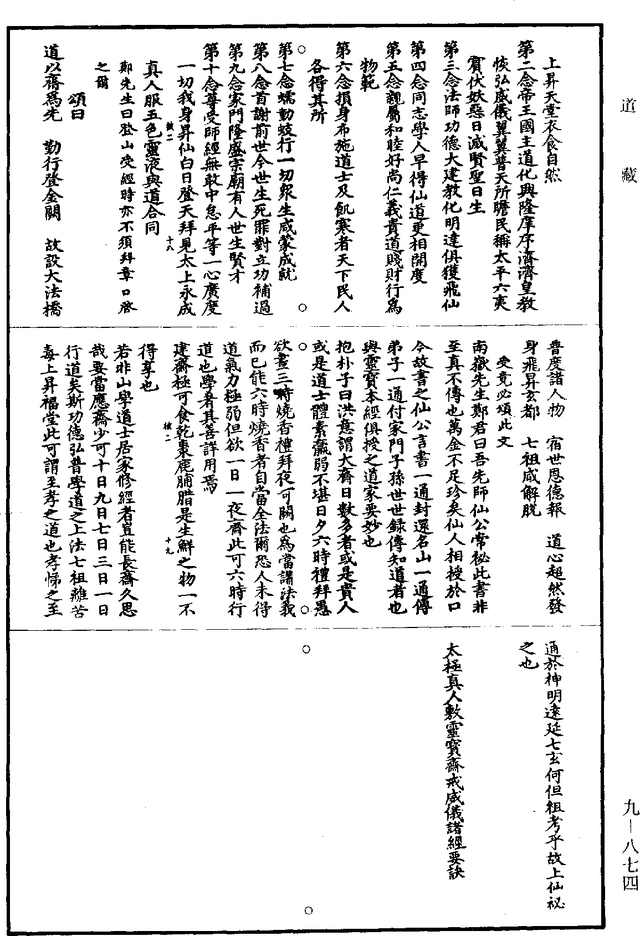 道藏
上昇天堂衣食自然
第二念帝王國主道化興隆庠序濟濟皇教
恢弘威儀翼翼普天所瞻民稱太平六夷
賓伏妖惡日滅賢聖日生
第三念法師功德大建教化明達俱獲飛仙
第四念同志學人早得仙道更相開度
第五念親屬和睦好尚仁義貴道賤財行為
物範
第六念損身布施道士及飢寒者天下民人
各得其所
第七念蠕動蚑行一切眾生咸蒙成就
第八念首謝前世今世生死罪對立功補過
第九念家門隆盛宗廟有人世生賢才
第十念尊受師經無敢中怠平等一心廣度
一切我身昇仙白日登天拜見太上永成
真人服五色靈液與道合同
鄭先生曰登山受經時亦不須拜章口啓
之爾
頌曰
道以齋為先　勤行登金闕　故設大法橋
普度諸人物　宿世恩德報　道心超然發
身飛昇玄都　七祖咸解脫
受竟必頌此文
南嶽先生鄭君曰吾先師仙公常秘此書非
至真不傳也萬金不足珍矣仙人相授於口
今故書之仙公言書一通封還名山一通傳
弟子一通付家門子孫世世錄傳知道者也
與靈寶本經俱授之道家要妙也
抱朴子曰洪意謂大齋日數多者或是貴人
或是道士體素羸弱不堪日夕六時禮拜愚
欲晝三時燒香禮拜夜可闕也為當謂法義
而已能六時燒香者自當全法爾恐人未得
道氣力極弱但欲一日一夜齋此可六時行
道也學者其善詳用焉
建齋極可食乾棗鹿脯腊是生鮮之物一不
得嘗也
若非山學道士居家修經者豈能長齋久思
哉要當應齋少可十日九日七日三日一日
行道矣斯功德弘普學道之上法七祖離苦
毒上昇福堂此可謂至孝之道也孝悌之至
通於神明遠延七玄何但祖考乎故上仙祕
之也
太極真人敷靈寶齋戒威儀諸經要訣
九—八七四